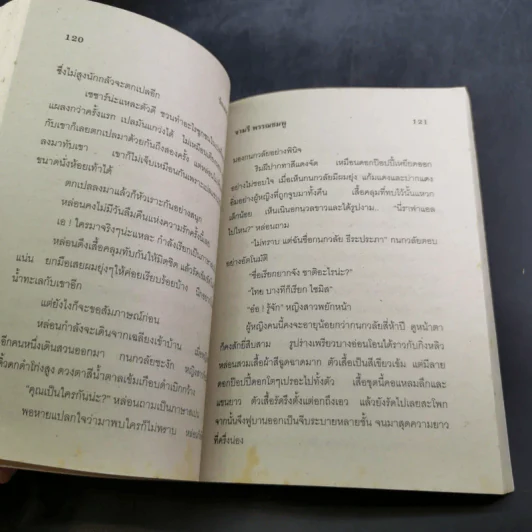 120
ซึ่งไม่สูงนักกลัวจะตกเปลอีก
เซซาร์น่ะแหละตัวดี ชวนทำอะไร
แผลงกว่าครั้งแรก เปลมันแกว่งได้ ไม่เหมือน
กับเขาก็เลยตกเปลมาด้วยกันถึงสองครั้ง
ลงมาทับเขา เขาก็ไม่เจ็บเหมือนกันเพราะ
ขนาดนั่งห้อยเท้าได้
ตกเปลลงมาแล้วก็หัวเราะกันอย่างสนุก
หล่อนคงไม่มีวันลืมคืนแห่งความรักครั้ง
เอ ! ใครมาจริงๆน่ะแหละ กำลังเรียกเป็น
หล่อนดึงเสื้อคลุมทับกันให้มิดชิด แล้ว
แน่น ยกมือเสยผมยุ่งๆให้ค่อยเรียบร้อยบ้าง
น้ำทะเลกับเขาอีก
แต่ยังไงก็จะขอสัมภาษณ์ก่อน
หล่อนกำลังจะเดินจากเฉลียงเข้าบ้าน
อีกคนหนึ่งเดินสวนออกมา กนกวลัยชะงัก
คิ้วดกดำโก่งสูง ดวงตาสีน้ำตาลเข้มเกือบดำเบิกกว้าง
“คุณเป็นใครกันน่ะ?” หล่อนถามเป็นภาษา
พอหายแปลกใจว่ามาพบใครก็ไม่ทราบ
ชามรี พรรณชมพู
121
มองกนกวลัยอย่างพินิจ
ริมฝีปากทาสีแดงจัด เหมือนดอกป๊อปปี้เหยียดออก
อย่างไม่ชอบใจ เมื่อเห็นกนกวลัยมีผมยุ่ง แก้มแดงและปากแดง
อิ่มอย่างผู้หญิงที่ถูกจูบมาทั้งคืน เสื้อคลุมที่ทบไว้นั้นแหวก
เล็กน้อย เห็นเนินอกนวลขาวและได้รูปงาม. “นี่ราฟาแอล
ไปไหน?” หล่อนถาม
“ไม่ทราบ แต่ฉันชื่อกนกวลัย ธีระประภา” กนกวลัยตอบ
อย่างอัตโนมัติ
“ชื่อเรียกยากจัง ชาติอะไรน่ะ?”
“ไทย บางทีก็เรียก ไซมิส”
“อ๋อ ! รู้จัก” หญิงสาวพยักหน้า
ผู้หญิงคนนี้คงจะอายุน้อยกว่ากนกวลัยสี่ห้าปี ดูหน้าตา
ก็คงสักยี่สิบสาม รูปร่างเพรียวบางอ่อนโอนได้ราวกับกิ่งหลิว
หล่อนสวมเสื้อผ้าสีฉูดฉาดมาก ตัวเสื้อเป็นสีเขียวเข้ม แต่มีลาย
ดอกป๊อปปี้ดอกโตๆเปรอะไปทั้งตัว เสื้อชุดนี้คอแหลมลึกและ
แขนยาว ตัวเสื้อรัดรึงตั้งแต่อกถึงเอว แล้วยังรัดไปเลยสะโพก
จากนั้นจึงฟูบานออกเป็นจีบระบายหลายชั้น จนมาสุดความยาว
ที่ครึ่งน่อง